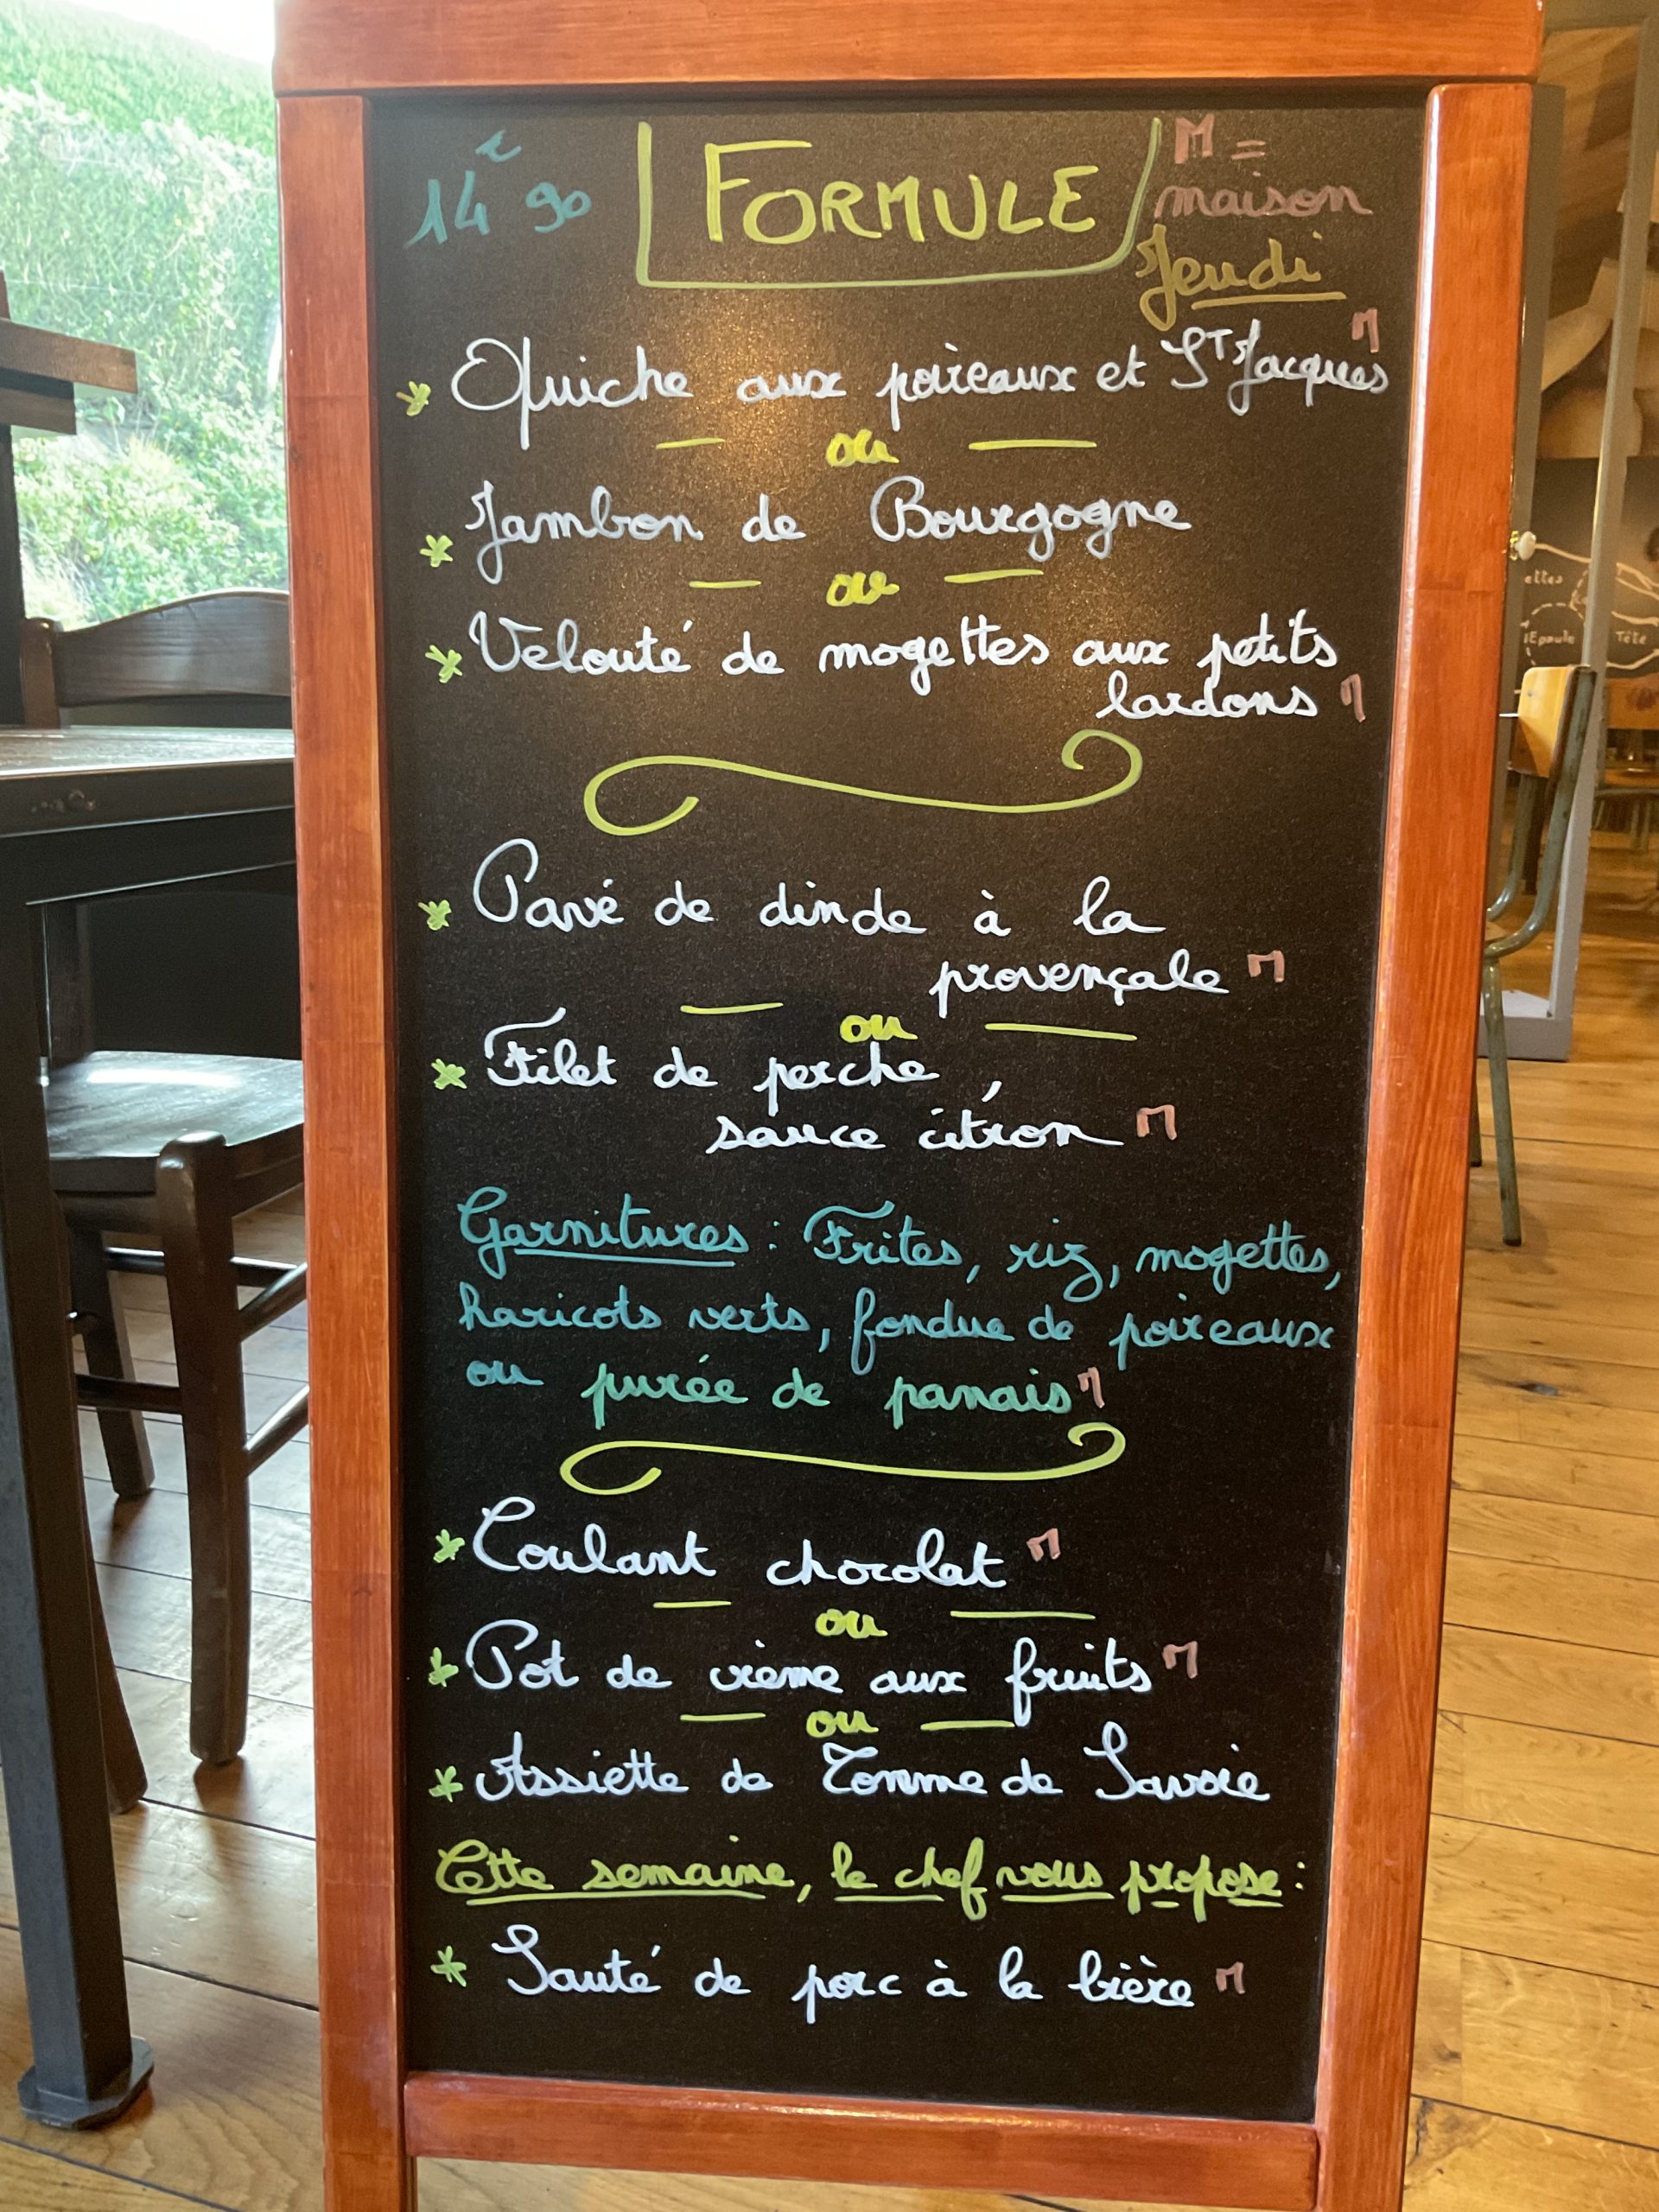 14€90 FORMULE M =
maison
Jeudi
Quiche aux poireaux et ST Jacques M
ou
Jambon de Bourgogne
ou
Velouté de mogettes aux petits
lardons M
Pavé de dinde à la
provençale M
ou
Filet de perche,
sauce citron M
Garnitures : Frites, riz, mogettes,
haricots verts, fondue de poireaux
ou purée de panais M
Coulant chocolat M
ou
Pot de crème aux fruits M
ou
Assiette de Tomme de Savoie
Cette semaine, le chef vous propose :
Sauté de porc à la bière M
ettes
Epaule Tête